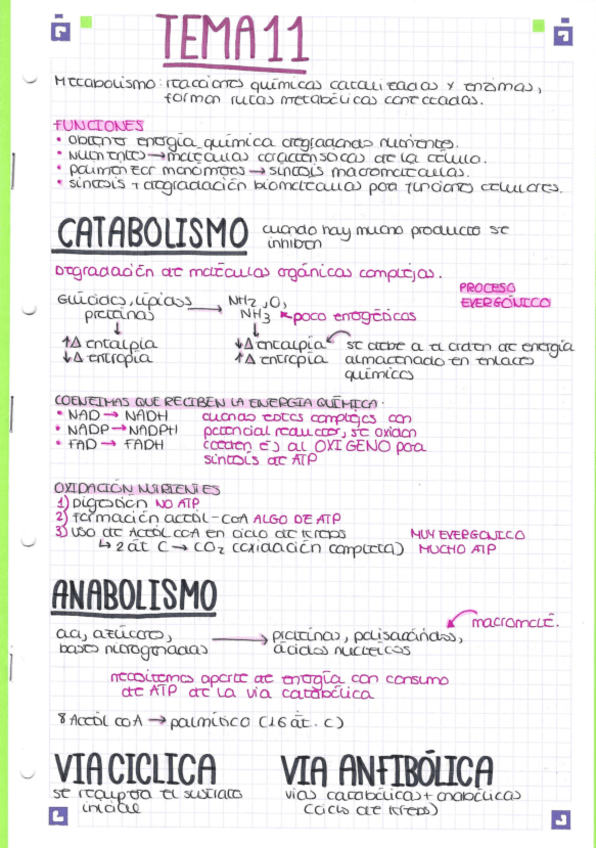 TEMA 11
Metabolismo: reacciones químicas catalizadas x enzimas,
forman rutas metabólicas conectadas.
FUNCIONES
• obtener energía química degradando nutrientes.
• Nutrientes → moléculas características de la célula.
• polimerizar monómeros → síntesis macromoléculas.
• síntesis + degradación biomoléculas para funciones celulares.
CATABOLISMO cuando hay mucho producto se
inhiben
Degradación de moléculas orgánicas complejas.
PROCESO
EXERGÓNICO
Glúcidos, lípidos → NH2, O,
proteínas NH3 ↖ poco energéticos
↓ ↓
↑Δ entalpía ↓Δ entalpía ↙ se debe a el orden de energía
↓Δ entropía ↑Δ entropía almacenado en enlaces
químicos
COENZIMAS QUE RECIBEN LA ENERGÍA QUÍMICA:
• NAD → NADH cuando estos complejos con
• NADP → NADPH potencial reductor, se oxidan
• FAD → FADH (ceden é) al OXIGENO para
síntesis de ATP
OXIDACIÓN NUTRIENTES
1) Digestión NO ATP
2) Formación acetil-CoA ALGO DE ATP
3) Uso de Acetil CoA en ciclo de Krebs MUY EXERGONICO
↳ 2 át C → CO2 (oxidación completa) MUCHO ATP
ANABOLISMO
macromolé.
aa, azúcares, → proteínas, polisacáridos,
bases nitrogenadas ácidos nucleicos
necesitamos aporte de energía con consumo
de ATP de la vía catabólica
8 Acetil CoA → palmítico (16 át. C)
VIA CICLICA VIA ANFIBÓLICA
se recupera el sustrato vías catabólicas + anabólicas
inicial (ciclo de Krebs)